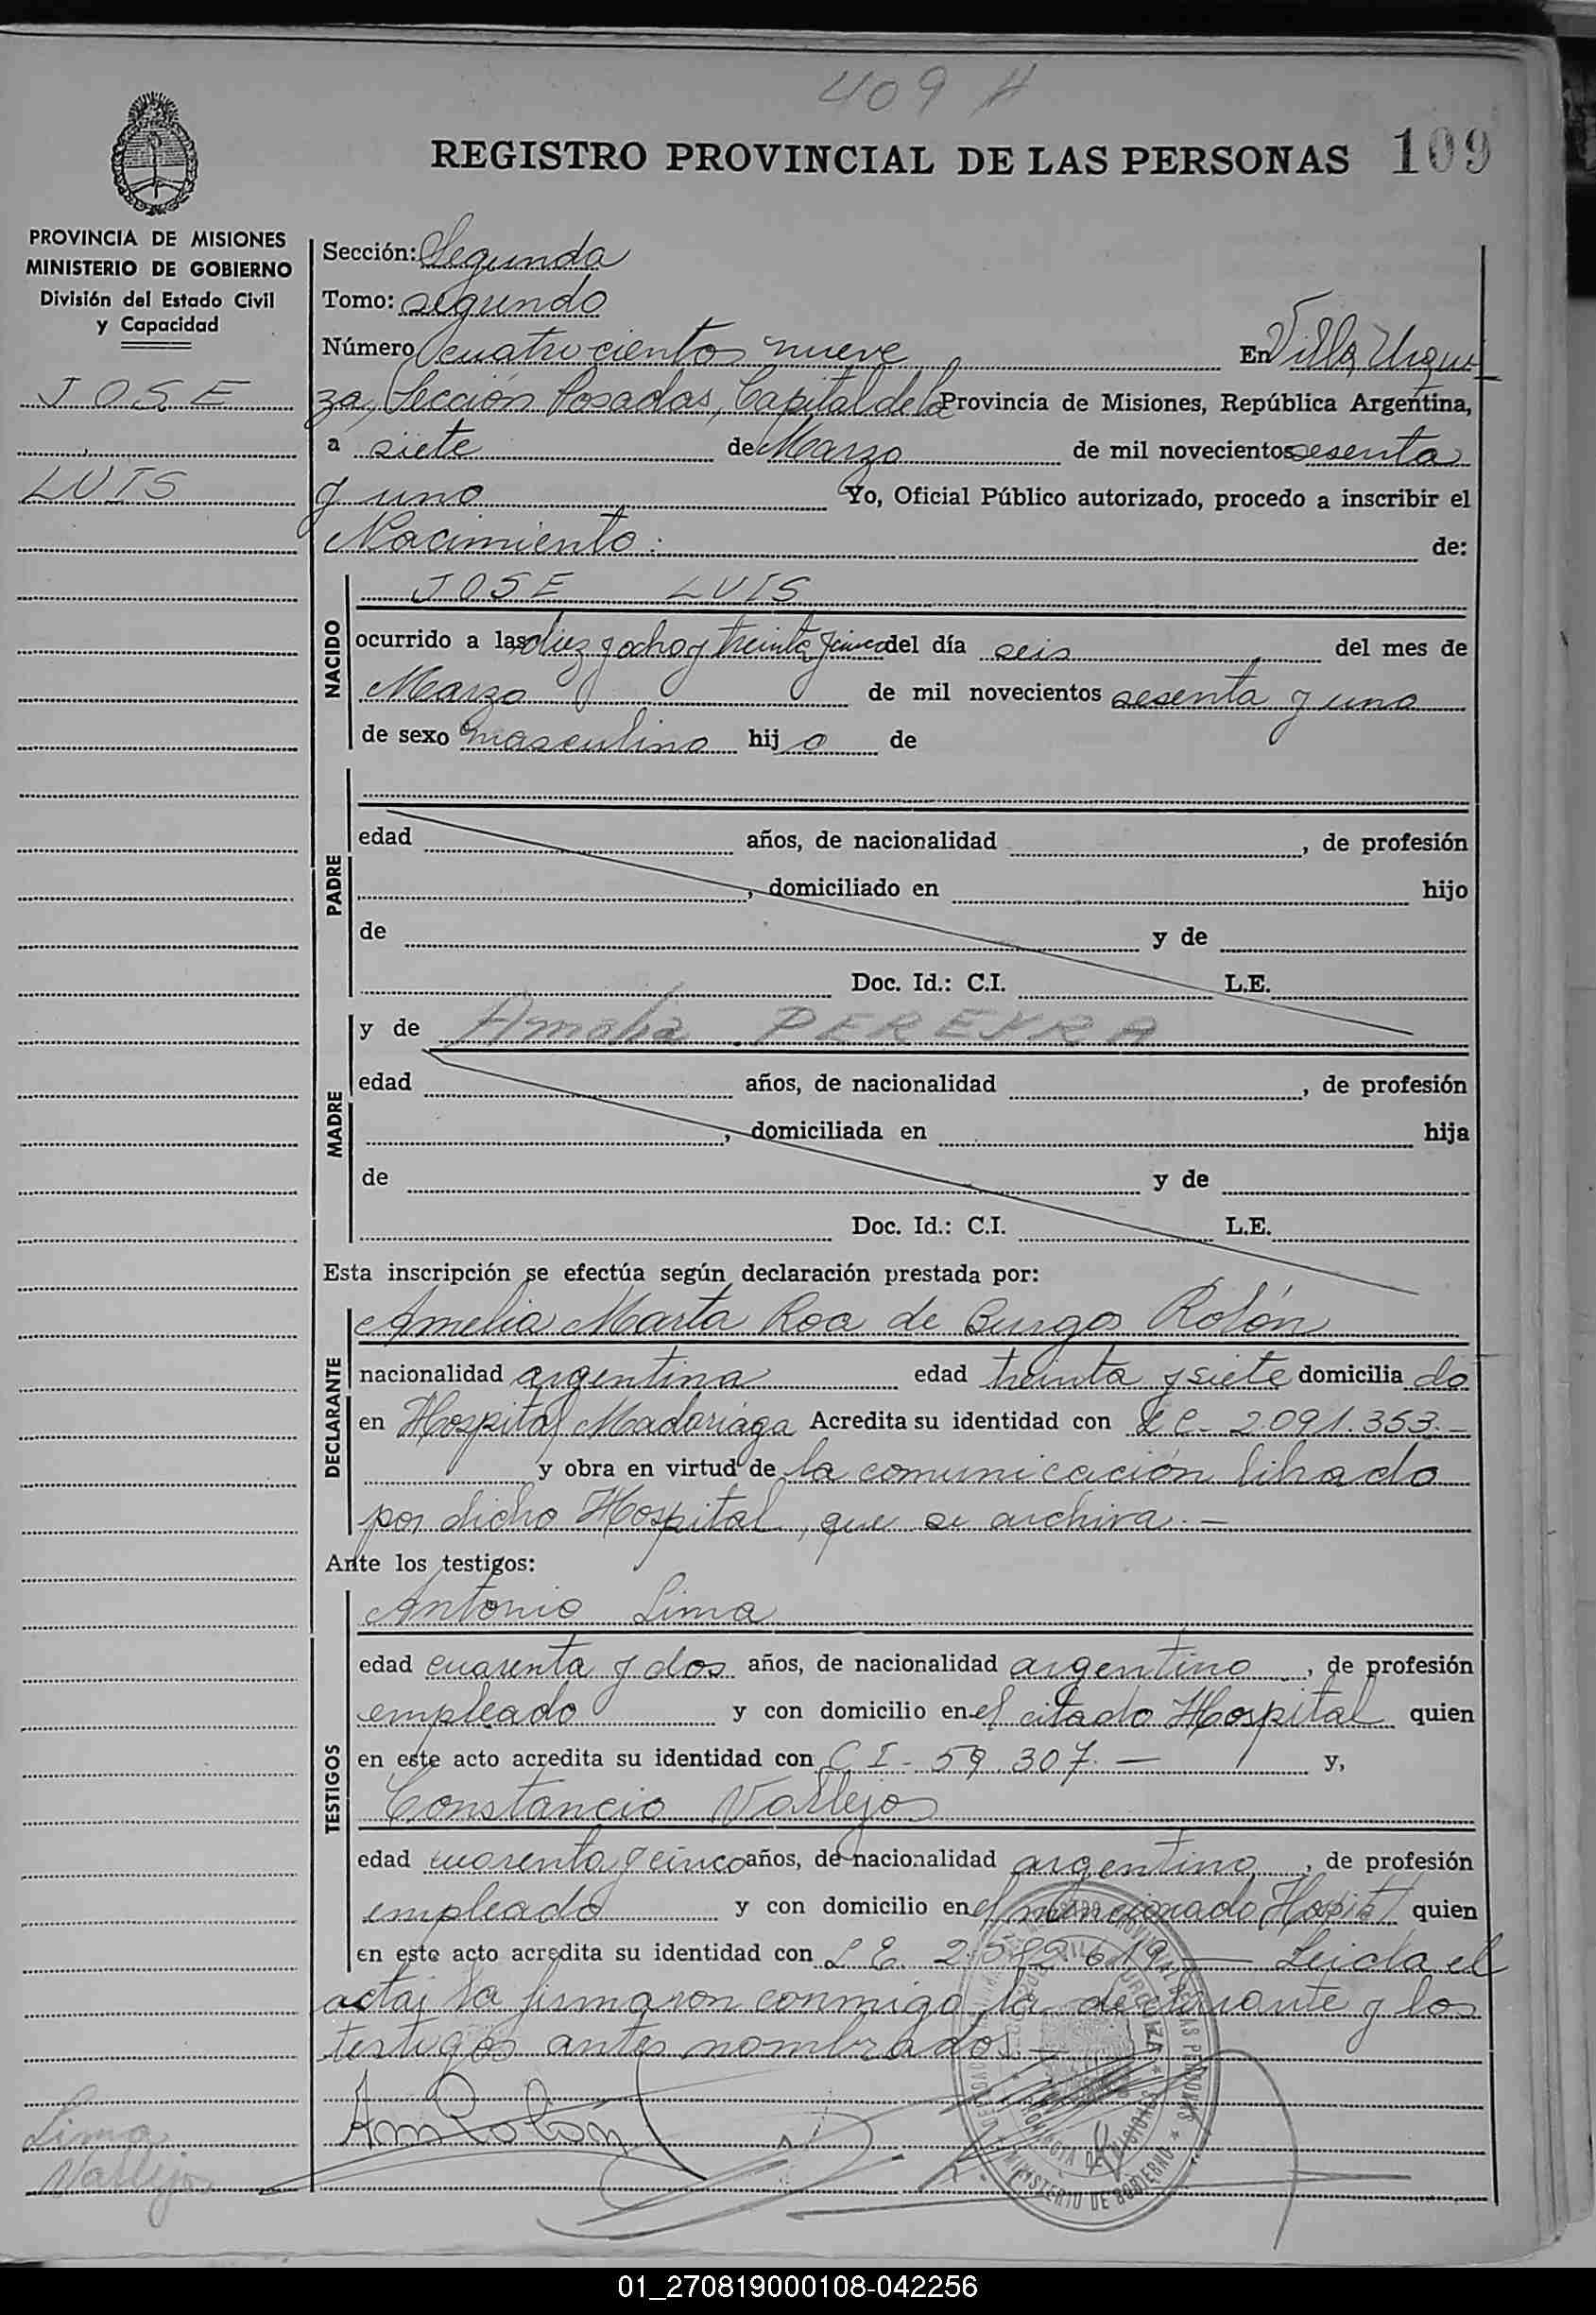 409 A
REGISTRO PROVINCIAL DE LAS PERSONAS 109
PROVINCIA DE MISIONES
MINISTERIO DE GOBIERNO
División del Estado Civil
y Capacidad
JOSE
LUIS
Sección: Segunda
Tomo: segundo
Número cuatrocientos nueve En Villa Urqui
za, Sección Posadas, Capital de la Provincia de Misiones, República Argentina,
a siete de Marzo de mil novecientos sesenta
y uno Yo, Oficial Público autorizado, procedo a inscribir el
Nacimiento: de:
NACIDO
JOSE LUIS
ocurrido a las diez y ocho y treinta y cinco del día seis del mes de
Marzo de mil novecientos sesenta y uno
de sexo masculino hijo de
PADRE
edad años, de nacionalidad , de profesión
, domiciliado en hijo
de y de
Doc. Id.: C.I. L.E.
MADRE
y de Amalia PEREYRA
edad años, de nacionalidad , de profesión
, domiciliada en hija
de y de
Doc. Id.: C.I. L.E.
Esta inscripción se efectúa según declaración prestada por:
DECLARANTE
Amelia Marta Roa de Burgos Rolón
nacionalidad argentina edad treinta y siete domicilia do
en Hospital Madariaga Acredita su identidad con L C- 2.091.353.-
y obra en virtud de la comunicación librado
por dicho Hospital, que se archiva.-
Ante los testigos:
TESTIGOS
Antonio Lima
edad cuarenta y dos años, de nacionalidad argentino, de profesión
empleado y con domicilio en el citado Hospital quien
en este acto acredita su identidad con C I - 59.307.- y,
Constancio Vallejos
edad cuarenta y cinco años, de nacionalidad argentino, de profesión
empleado y con domicilio en el mencionado Hospital quien
en este acto acredita su identidad con L E. Leida el
acta, la firmaron conmigo la declarante y los
testigos antes nombrados.
AmRolón
Lima
Vallejos
MINISTERIO DE GOBIERNO
01_270819000108-042256